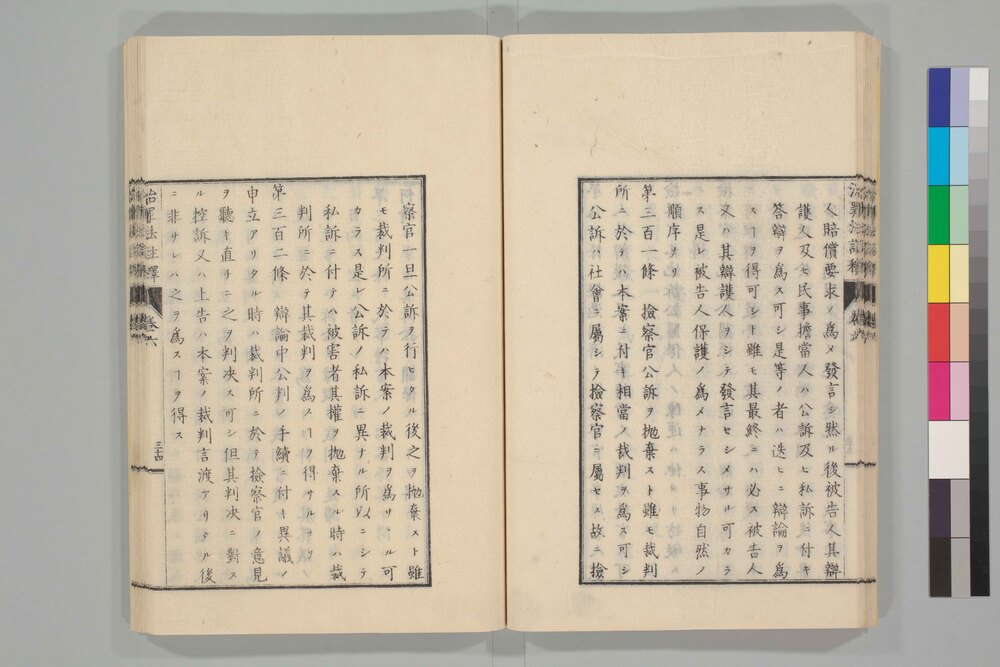 人賠償要求ノ爲メ發言シ然ル後被告人其辯
護人及ヒ民事擔當人ハ公訴及ヒ私訴ニ付キ
答辯ヲ爲ス可シ是等ノ者ハ迭ヒニ辯論ヲ爲
スヿヲ得可シト雖モ其最終ニハ必ス被告人
又ハ其辯護人ヲシテ發言セシメサル可カラ
ス是レ被告人保護ノ爲メナラス事物自然ノ
順序ナリ
第三百一條　檢察官公訴ヲ抛棄スト雖モ裁判
所ニ於テハ本案ニ付キ相當ノ裁判ヲ爲ス可シ
公訴ハ社會ニ屬シテ檢察官ニ屬セス故ニ檢
察官一旦公訴ヲ行ヒタル後之ヲ抛棄スト雖
モ裁判所ニ於テハ本案ノ裁判ヲ爲サヽル可
カラス是レ公訴ノ私訴ニ異ナル所以ニシテ
私訴ニ付テハ被害者其權ヲ抛棄スル時ハ裁
判所ニ於テ其裁判ヲ爲スヿヲ得サルナリ
第三百二條　辯論中公判ノ手續ニ付キ異議ノ
申立アリタル時ハ裁判所ニ於テ檢察官ノ意見
ヲ聽キ直チニ之ヲ判决ス可シ但其判决ニ對ス
ル控訴又ハ上告ハ本案ノ裁判言渡アリタル後
ニ非サレハ之ヲ爲スヿヲ得ス
治罪法註釋　卷六　三十四